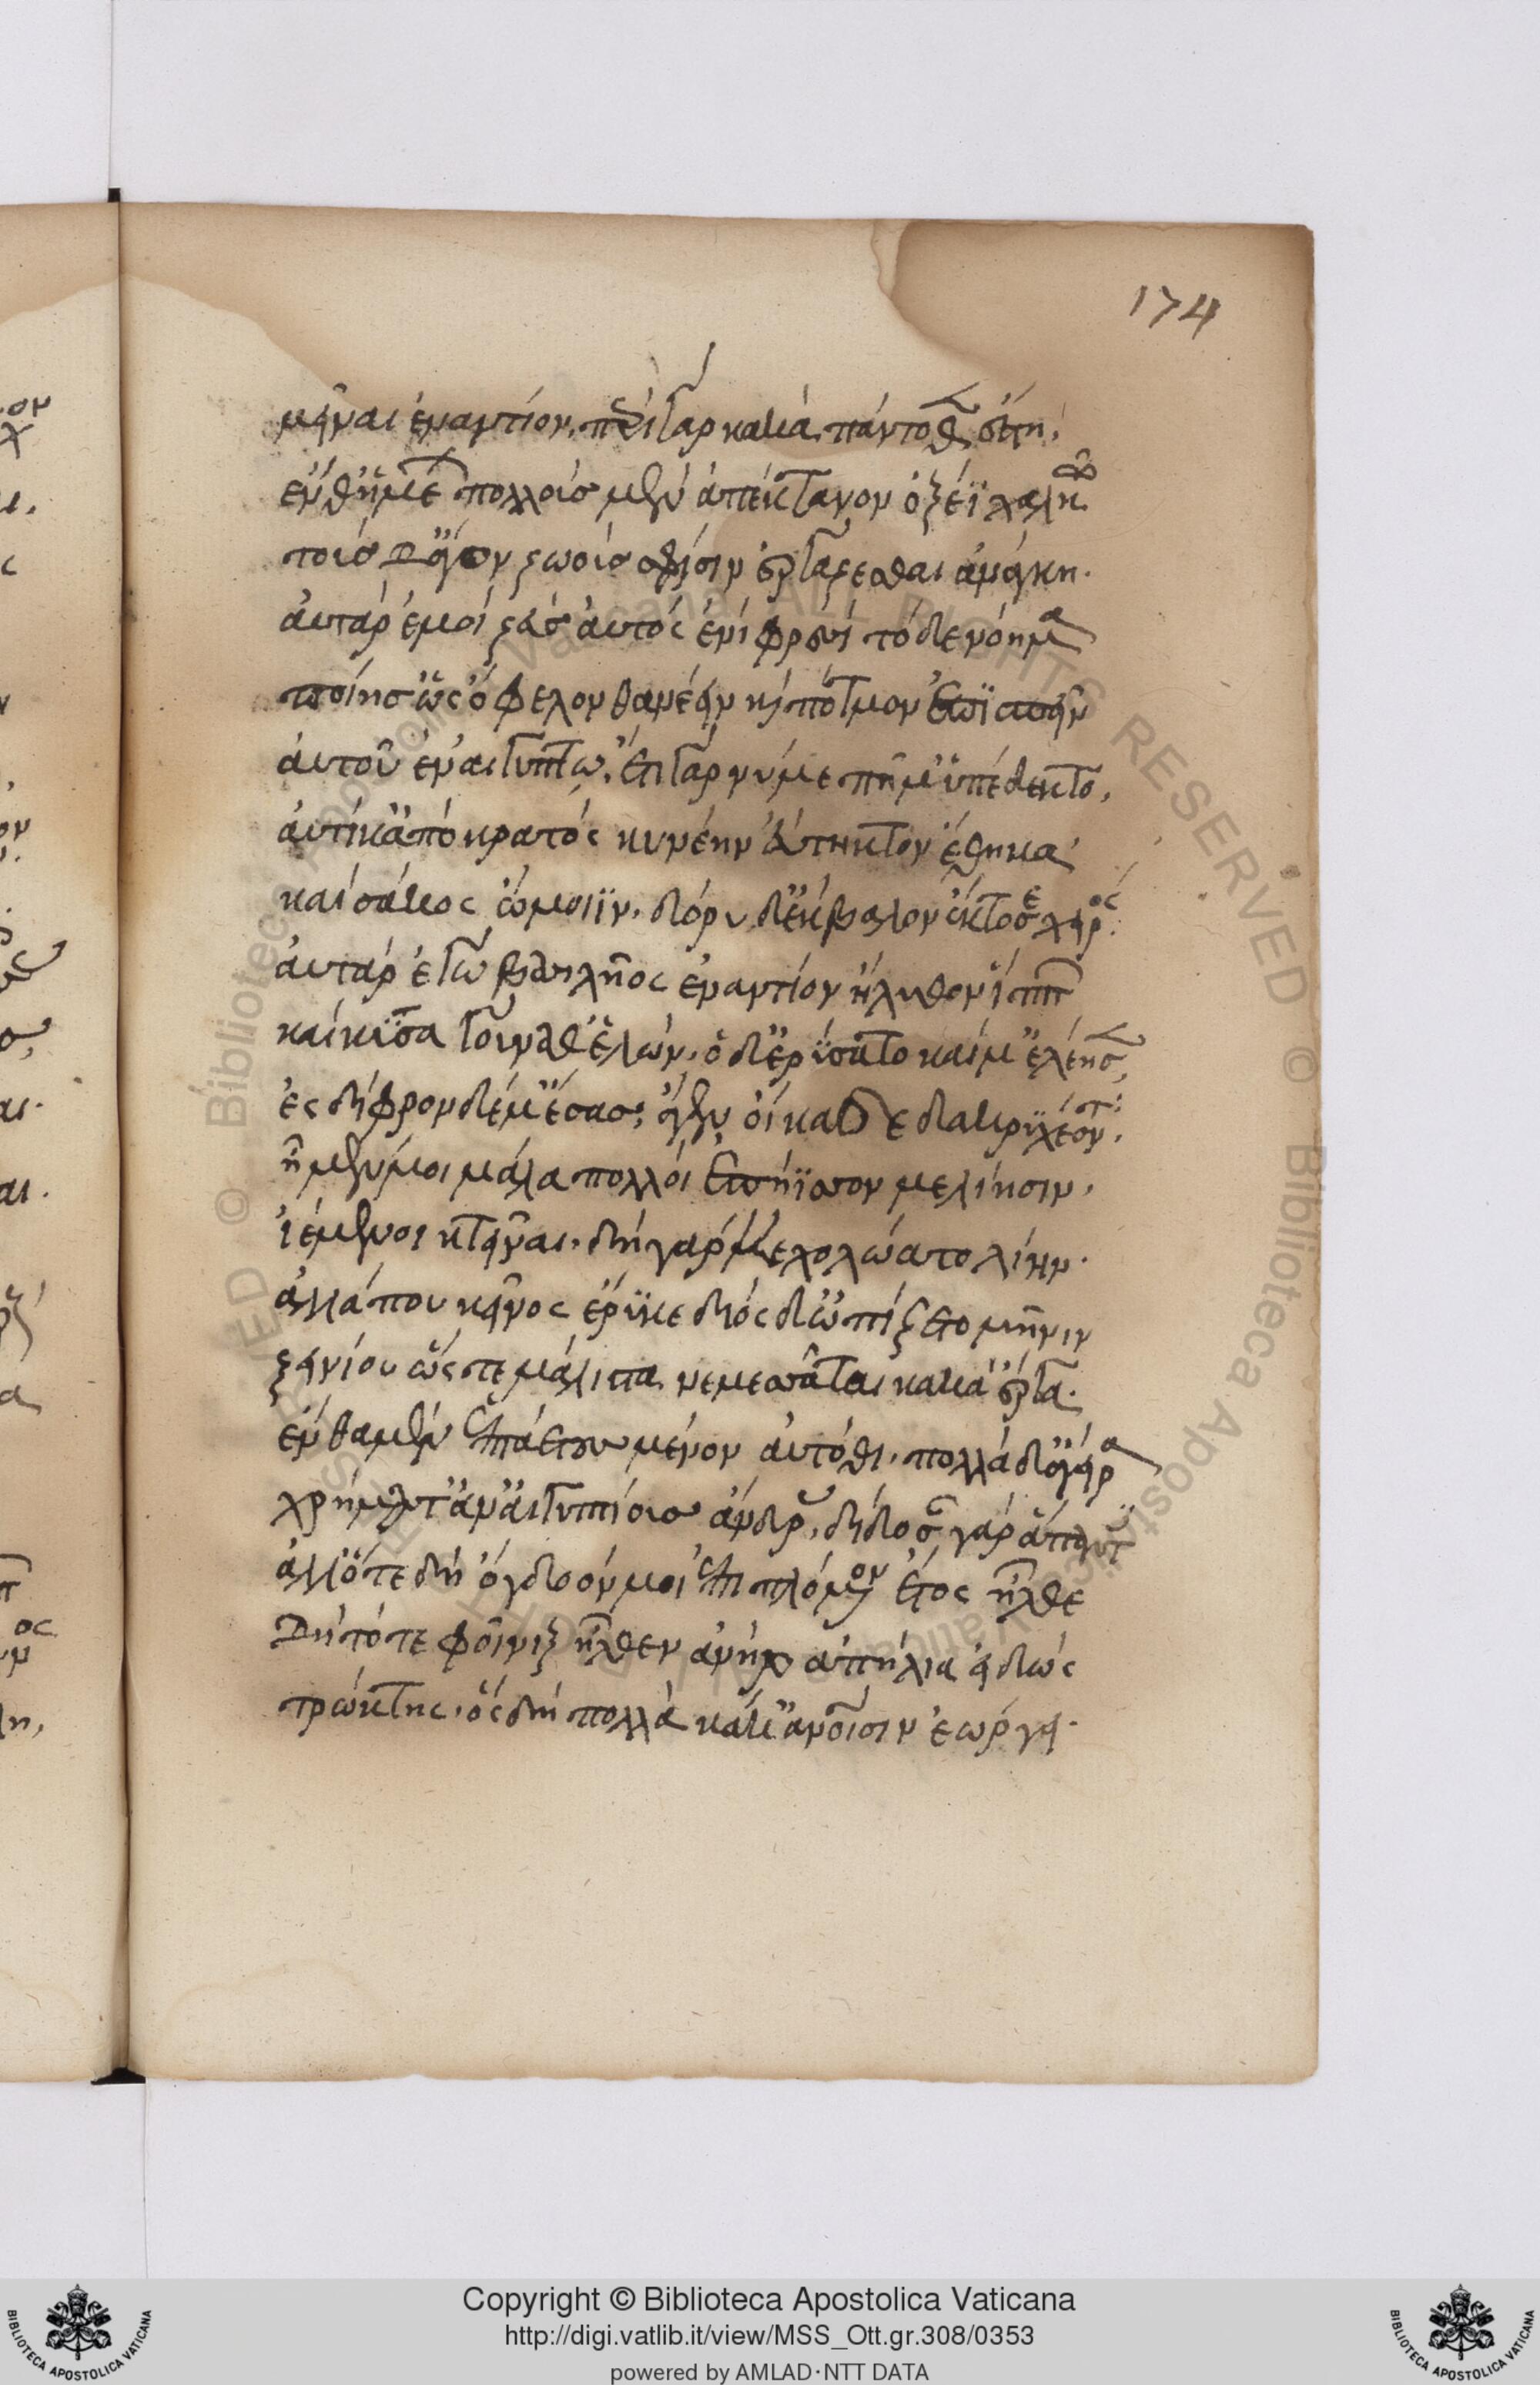 174
μεῖναι ἐναντίον· περὶ γὰρ κακὰ πάντοθεν ἔστη·
ἔνθ' ἡμέων πολλοὺς μὲν ἀπέκτανον ὀξέϊ χαλκῶ
τοὺς δ' ἄναγον ζωοὺς σφίσιν ἐργάζεσθαι ἀνάγκη·
αὐτὰρ ἐμοὶ ζεὺς αὐτὸς ἐνὶ φρεσὶ τόδε νόημα
ποίησ' ὣς ὄφελον θανέειν καὶ πότμον ἐπισπεῖν
αὐτοῦ ἐν αἰγύπτω, ἔτι γάρ νύ με πῆμ' ὑπέδεκτο,
αὐτίκ' ἀπὸ κρατὸς κυνέην εὔτηκτον ἔθηκα
καὶ σάκος ὤμοιϊν, δόρυ δ' ἔκβαλον ἔκτοσε χειρός·
αὐτὰρ ἐγὼ βασιλῆος ἐναντίον ἤλυθον ἵππων
καὶ κύσα γούναθ' ἑλών, ὁ δ' ἐρύσατο καί μ' ἐλέησεν,
ἐς δίφρον δέ μ' ἕσας, ἄγεν οἴκαδε δακρυχέοντα·
ἦ μέν μοι μάλα πολλοὶ ἐπήϊσσον μελίησιν,
ἱέμενοι κτεῖναι, δὴ γὰρ κεχολώατο λίην·
ἀλλ' ἀπὸ κεῖνος ἔρυκε διὸς δ' ὠπίζετο μῆνιν
ξεινίου ὥς τε μάλιστα νεμεσσᾶται κακὰ ἔργα·
ἔνθα μὲν ἑπτάετες μένον αὐτόθι, πολλὰ δ' ἄγειρα
χρήματ' ἀν' αἰγυπτίους ἄνδρας, δίδοσαν γὰρ ἅπαντες
ἀλλ' ὅτε δὴ ὄγδοόν μοι ἐπιπλόμενον ἔτος ἦλθε
δὴ τότε φοῖνιξ ἦλθεν ἀνὴρ ἀπατήλια εἰδὼς
τρώκτης, ὃς δὴ πολλὰ κάκ' ἀνθρώποισιν ἐώργει·
Copyright © Biblioteca Apostolica Vaticana
http://digi.vatlib.it/view/MSS_Ott.gr.308/0353
powered by AMLAD·NTT DATA